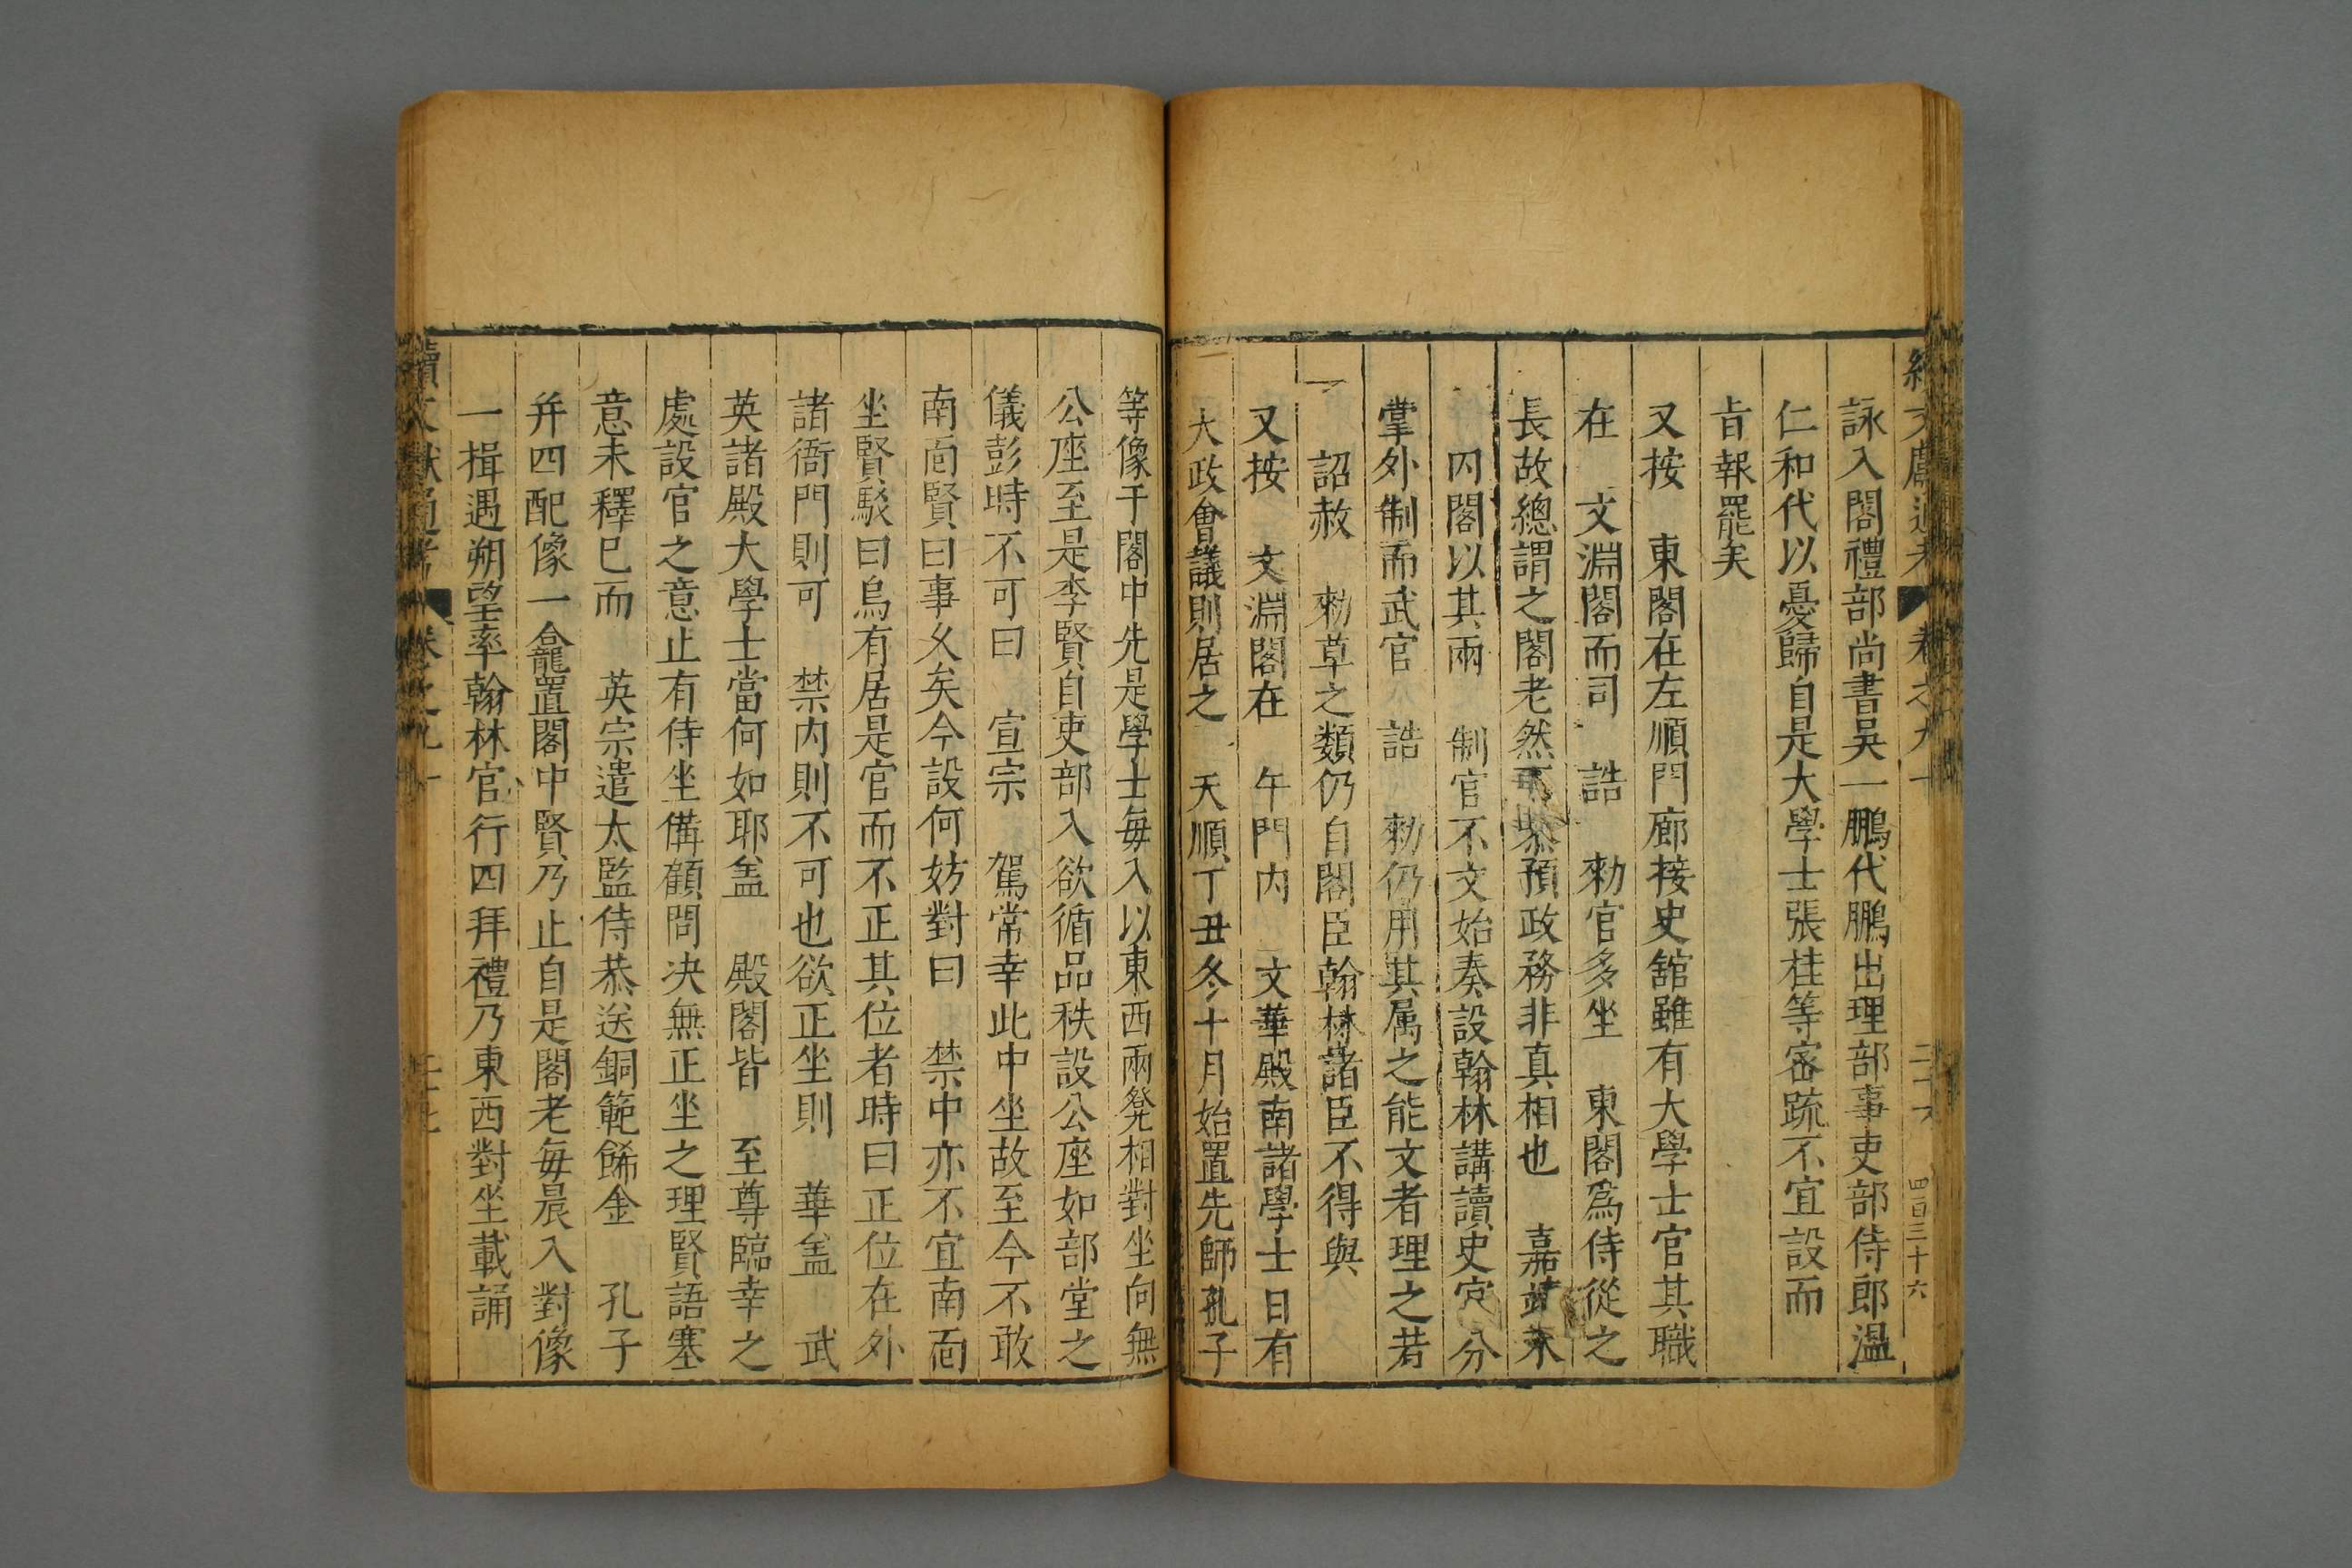 續文獻通考 卷之九十 二十六 四百三十六
詠入閣禮部尚書吳一鵬代鵬出理部事吏部侍郎溫
仁和代以憂歸自是大學士張桂等密疏不宜設而
旨報罷矣
又按 東閣在左順門廊接史館雖有大學士官其職
在 文淵閣而司 誥 勑官多坐 東閣爲侍從之
長故總謂之閣老然預政務非真相也 嘉靖末
内閣以其兩 制官不文始奏設翰林講讀史官分
掌外制而武官 誥 勑仍用其属之能文者理之若
詔赦 勑草之類仍自閣臣翰林諸臣不得與
又按 文淵閣在 午門内 文華殿南諸學士日有
大政會議則居之 天順丁丑冬十月始置先師孔子
等像于閣中先是學士每入以東西兩凳相對坐向無
公座至是李賢自吏部入欲循品秩設公座如部堂之
儀彭時不可曰 宣宗 駕常幸此中坐故至今不敢
南面賢曰事久矣今設何妨對曰 禁中亦不宜南面
坐賢駁曰烏有居是官而不正其位者時曰正位在外
諸衙門則可 禁内則不可也欲正坐則 華盖 武
英諸殿大學士當何如耶盖 殿閣皆 至尊臨幸之
處設官之意止有侍坐備顧問决無正坐之理賢語塞
意未釋已而 英宗遣太監侍恭送銅範餙金 孔子
并四配像一龕置閣中賢乃止自是閣老每晨入對像
一揖遇朔望率翰林官行四拜禮乃東西對坐載誦
續文獻通考 卷之九十 二十七